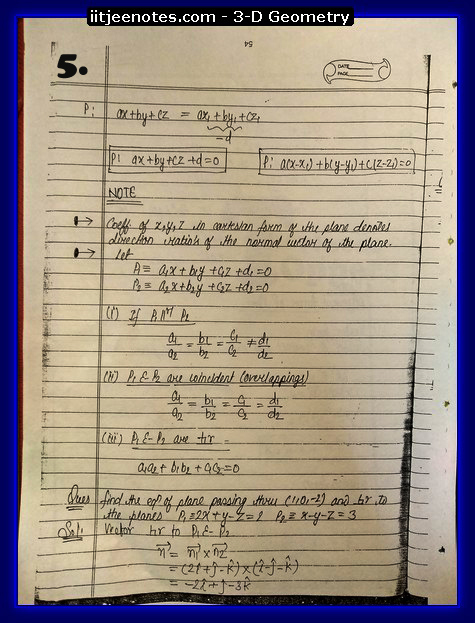 iitjeenotes.com - 3-D Geometry
54
5.
DATE
PAGE
P: ax+by+cz = ax₁+by₁+cz₁
-d
P: ax+by+cz+d=0
P: a(x-x₁)+b(y-y₁)+c(z-z₁)=0
NOTE
Coeff of x,y,z in cartesian form of the plane denotes
direction ratio's of the normal vector of the plane.
Let
P₁≡ a₁x+b₁y+c₁z+d₁=0
P₂≡ a₂x+b₂y+c₂z+d₂=0
(i) If P₁ ||ˡ P₂
a₁/a₂ = b₁/b₂ = c₁/c₂ ≠ d₁/d₂
(ii) P₁ & P₂ are coincident (overlappings)
a₁/a₂ = b₁/b₂ = c₁/c₂ = d₁/d₂
(iii) P₁ & P₂ are ⊥r -
a₁a₂+b₁b₂+c₁c₂=0
Ques find the eqⁿ of plane passing thru (1,0,-2) and ⊥r to
the planes P₁≡2x+y-z=2 P₂≡x-y-z=3
Sol: Vector ⊥r to P₁ & P₂
n⃗ = n₁⃗ × n₂⃗
= (2î+ĵ-k̂)×(î-ĵ-k̂)
= -2î+ĵ-3k̂